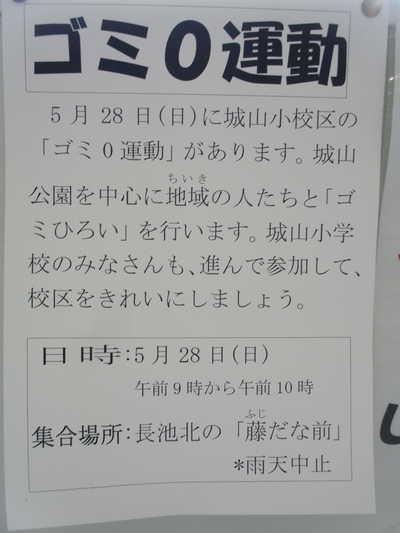 ゴミ0運動
5月28日(日)に城山小校区の
「ゴミ0運動」があります。城山
ちいき
公園を中心に地域の人たちと「ゴ
ミひろい」を行います。城山小学
校のみなさんも、進んで参加して、
校区をきれいにしましょう。
日時:5月28日(日)
午前9時から午前10時
ふじ
集合場所:長池北の「藤だな前」
*雨天中止